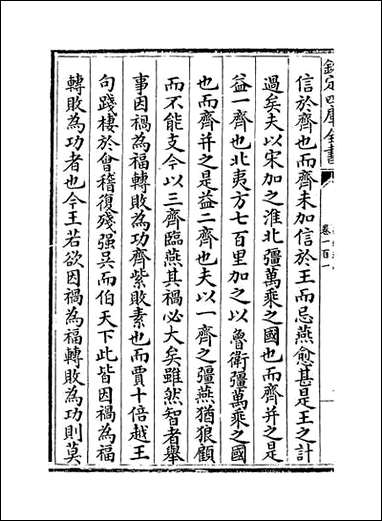 欽定四庫全書
卷一百一
信於齊也而齊未加信於王而忌燕愈甚是王之計
過矣夫以宋加之淮北彊萬乘之國也而齊并之是
益一齊也北夷方七百里加之以魯衛彊萬乘之國
也而齊并之是益二齊也夫以一齊之彊燕猶狼顧
而不能支今以三齊臨燕其禍必大矣雖然智者舉
事因禍為福轉敗為功齊紫敗素也而賈十倍越王
句踐棲於會稽復殘强吳而伯天下此皆因禍為福
轉敗為功者也今王若欲因禍為福轉敗為功則莫